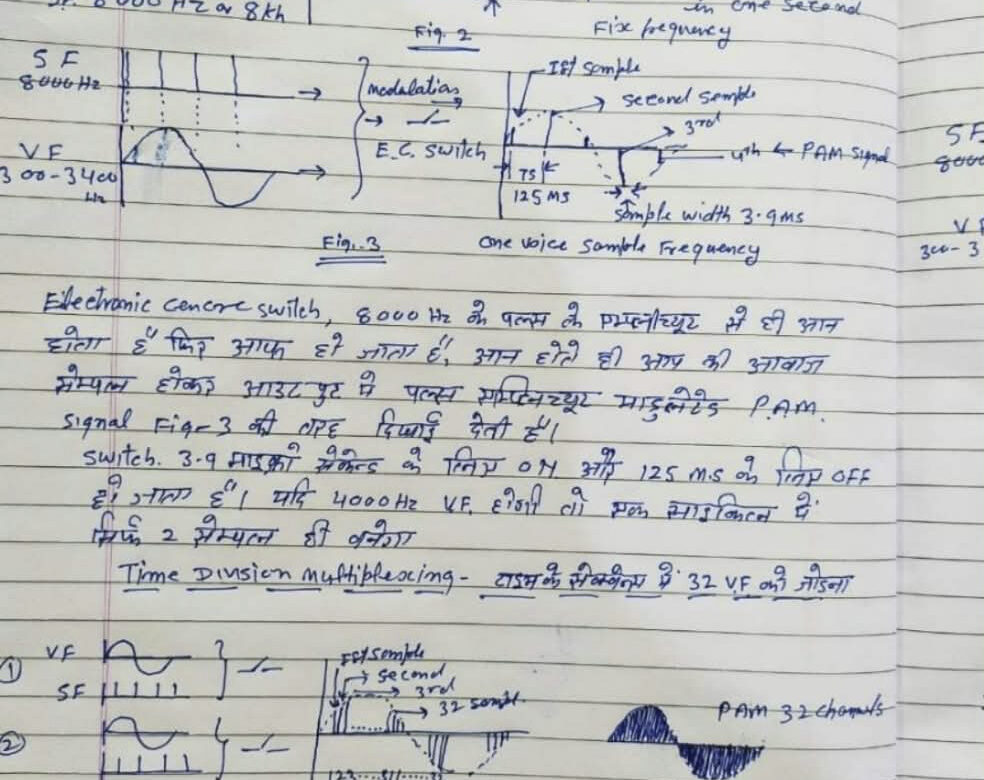 8000 Hz or 8kh
in one second
Fig. 2
Fix frequency
SF
8000 Hz
modulation
E.C. switch
Ist sample
second sample
3rd
4th ← PAM signal
VF
300-3400
Hz
TS
125 MS
Sample width 3.9ms
Fig.-3
one voice sample frequency
SF
8000
VF
300-3
Electronic cencore switch, 8000 Hz के पल्स के एम्प्लीच्यूट से ही आन
होता है फिर आफ हो जाता है, आन होते ही आप की आवाज
सेम्पल होकर आउट पुट में पल्स एम्प्लिच्यूट माडुलेटेड P.A.M.
signal Fig-3 की तरह दिखाई देती है।
switch. 3.9 माइक्रो सेकेन्ड के लिए ON और 125 M.S के लिए OFF
हो जाता है। यदि 4000Hz VF. होगी तो एक साइकिल में
सिर्फ 2 सेम्पल ही बनेगा
Time Division Multiplexing - टाइम के सीक्वेन्स में 32 V.F को जोड़ना
① VF
SF
Ist sample
second
3rd
32 sampl.
PAM 32 channels
②